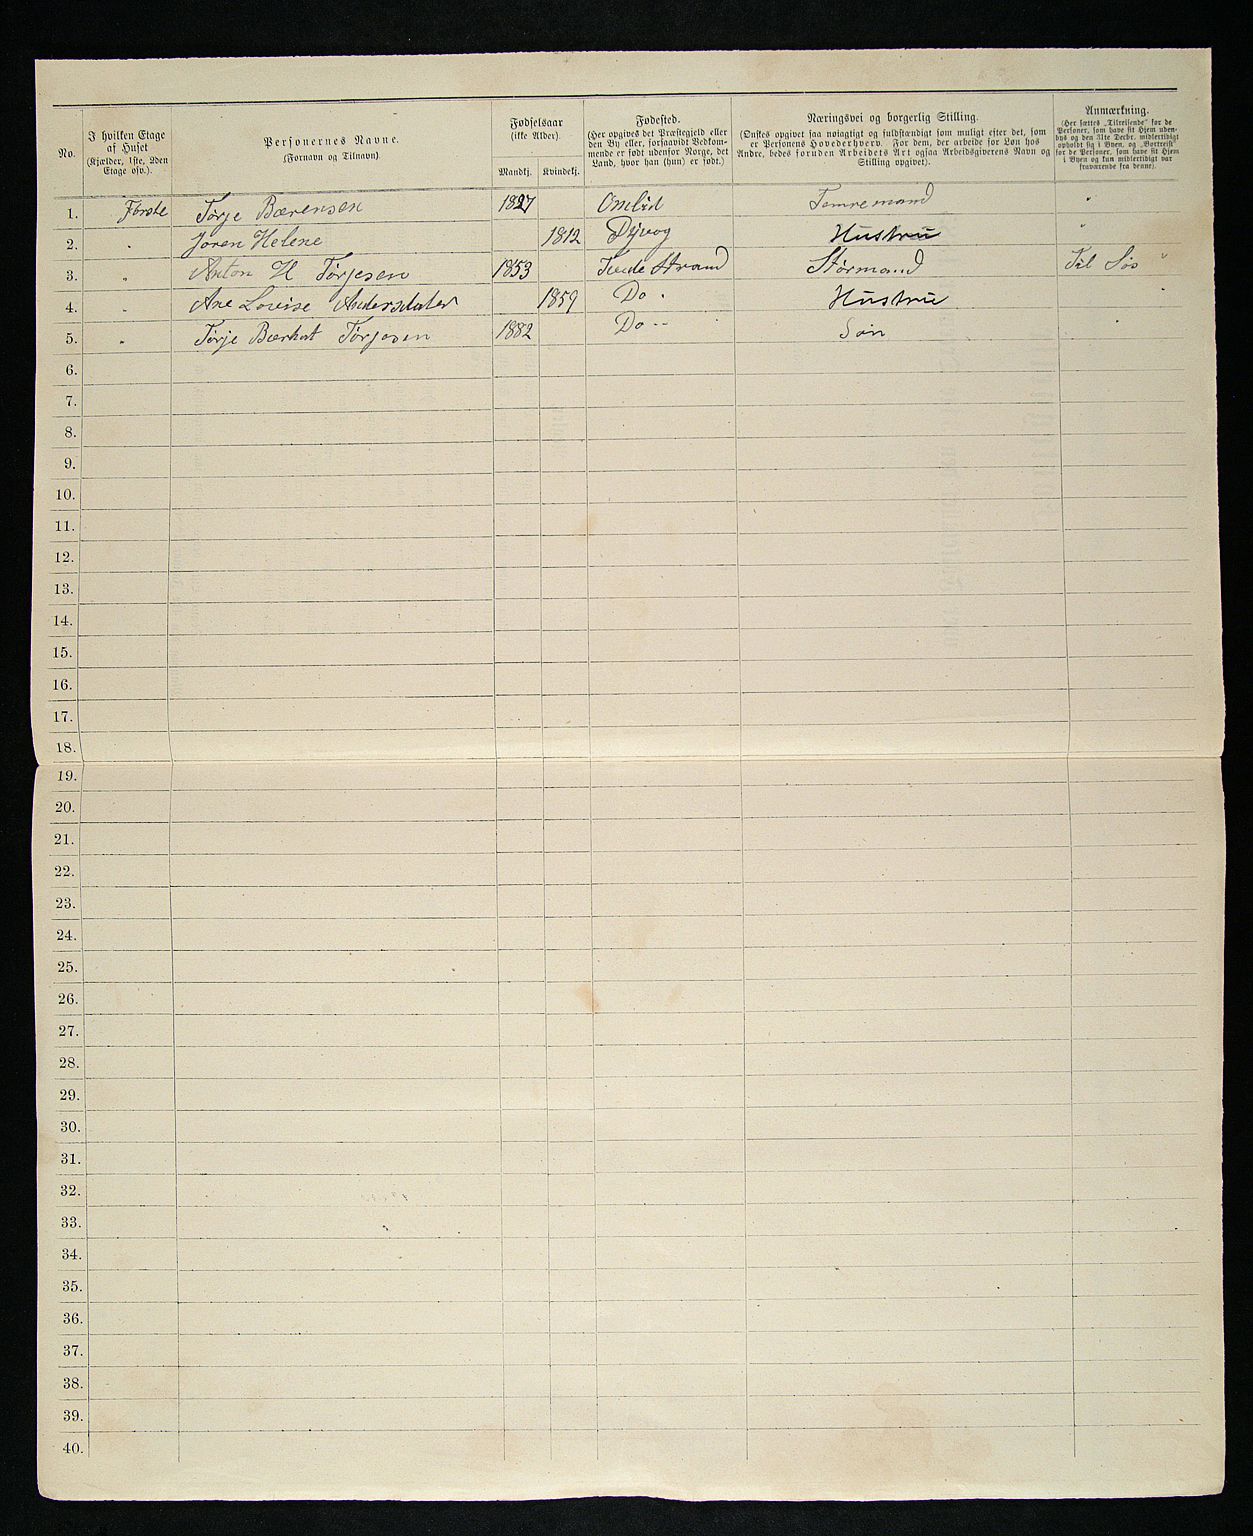 No.
I hvilken Etage
af Huset
(Kjælder, 1ste, 2den
Etage osv.).
Personernes Navne.
(Fornavn og Tilnavn)
Fødselsaar
(ikke Alder).
Mandkj. Kvindekj.
Fødested.
(Her opgives det Præstegjeld eller
den By eller, forsaavidt Vedkom-
mende er født udenfor Norge, det
Land, hvor han (hun) er født.)
Næringsvei og borgerlig Stilling.
(Ønskes opgivet saa nøiagtigt og fuldstændigt som muligt efter det, som
er Personens Hovederhverv. For dem, der arbeide for Løn hos
Andre, bedes foruden Arbeidets Art ogsaa Arbeidsgiverens Navn og
Stilling opgivet).
Anmærkning.
(Her sættes „Tilreisende" for de
Personer, som have sit Hjem uden-
bys og den 31te Decbr. midlertidigt
opholdt sig i Byen, og „Bortreist"
for de Personer, som have sit Hjem
i Byen og kun midlertidigt var
fraværende fra denne).
1. Første Tørje Bærensen 1827 Omlid Temremand "
2. " Joren Helene 1812 Dijvog Hustru "
3. " Anton H Tørjesen 1853 Tvede Strand Størmand Til Søs "
4. " Ane Lovise Andersdater 1859 Do. Hustru "
5. " Tørje Bærhat Tørjesen 1882 Do -- Søn "
6.
7.
8.
9.
10.
11.
12.
13.
14.
15.
16.
17.
18.
19.
20.
21.
22.
23.
24.
25.
26.
27.
28.
29.
30.
31.
32.
33.
34.
35.
36.
37.
38.
39.
40.